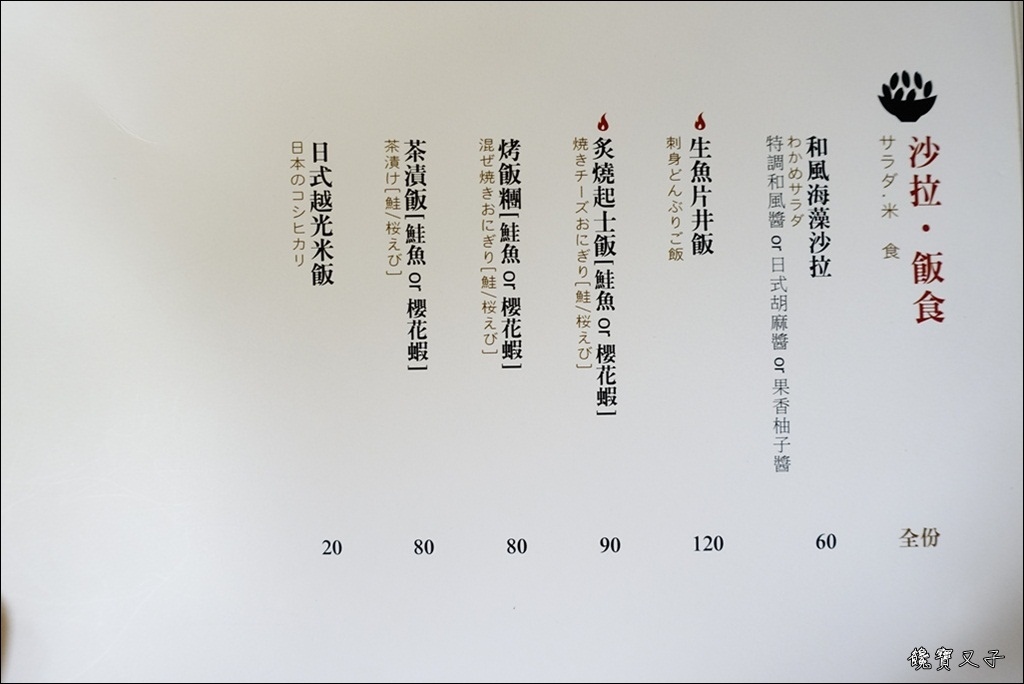 沙拉・飯食
サラダ・米 食
全份
和風海藻沙拉
わかめサラダ
特調和風醬 or 日式胡麻醬 or 果香柚子醬
60
生魚片丼飯
刺身どんぶりご飯
120
炙燒起士飯[鮭魚 or 櫻花蝦]
焼きチーズおにぎり[鮭/桜えび]
90
烤飯糰[鮭魚 or 櫻花蝦]
混ぜ焼きおにぎり[鮭/桜えび]
80
茶漬飯[鮭魚 or 櫻花蝦]
茶漬け[鮭/桜えび]
80
日式越光米飯
日本のコシヒカリ
20
饞寶叉子